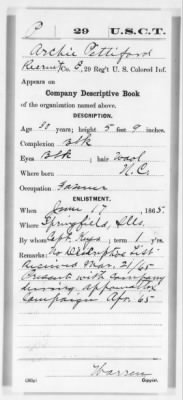 P 29 U.S.C.T.
Archie Pettiford
Recruit, Co. E, 29 Reg't U. S. Colored Inf.
Appears on
Company Descriptive Book
of the organization named above.
DESCRIPTION.
Age 20 years; height 5 feet 9 inches.
Complexion Blk
Eyes Blk ; hair Wool
Where born N.C.
Occupation Farmer
ENLISTMENT.
When Jany 17, 1865.
Where Springfield, Ills.
By whom Capt. Keys ; term 1 y'rs.
Remarks: No Descriptive List
Received Mar. 21/65
Present with Company
during Appomattox
Campaign Apr. 65
Warren
Copyist.